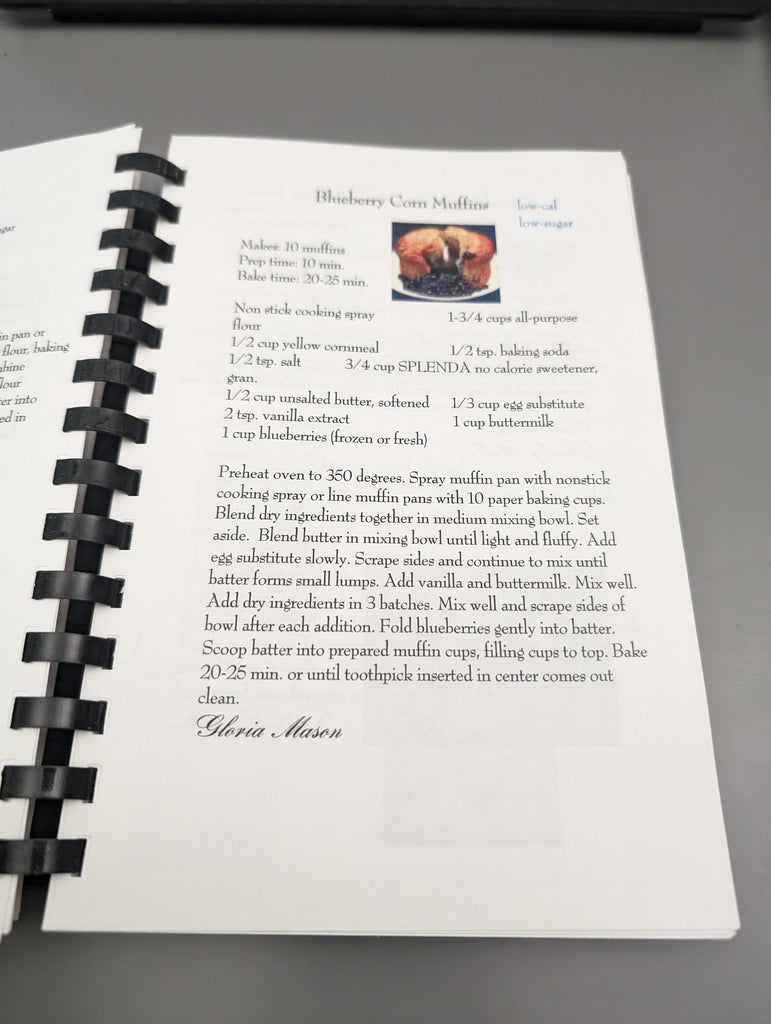 gar
in pan or
flour, baking
bine
lour
er into
ed in
Blueberry Corn Muffins
low-cal
low-sugar
Makes: 10 muffins
Prep time: 10 min.
Bake time: 20-25 min.
Non stick cooking spray 1-3/4 cups all-purpose
flour
1/2 cup yellow cornmeal 1/2 tsp. baking soda
1/2 tsp. salt 3/4 cup SPLENDA no calorie sweetener,
gran.
1/2 cup unsalted butter, softened 1/3 cup egg substitute
2 tsp. vanilla extract 1 cup buttermilk
1 cup blueberries (frozen or fresh)
Preheat oven to 350 degrees. Spray muffin pan with nonstick
cooking spray or line muffin pans with 10 paper baking cups.
Blend dry ingredients together in medium mixing bowl. Set
aside. Blend butter in mixing bowl until light and fluffy. Add
egg substitute slowly. Scrape sides and continue to mix until
batter forms small lumps. Add vanilla and buttermilk. Mix well.
Add dry ingredients in 3 batches. Mix well and scrape sides of
bowl after each addition. Fold blueberries gently into batter.
Scoop batter into prepared muffin cups, filling cups to top. Bake
20-25 min. or until toothpick inserted in center comes out
clean.
Gloria Mason